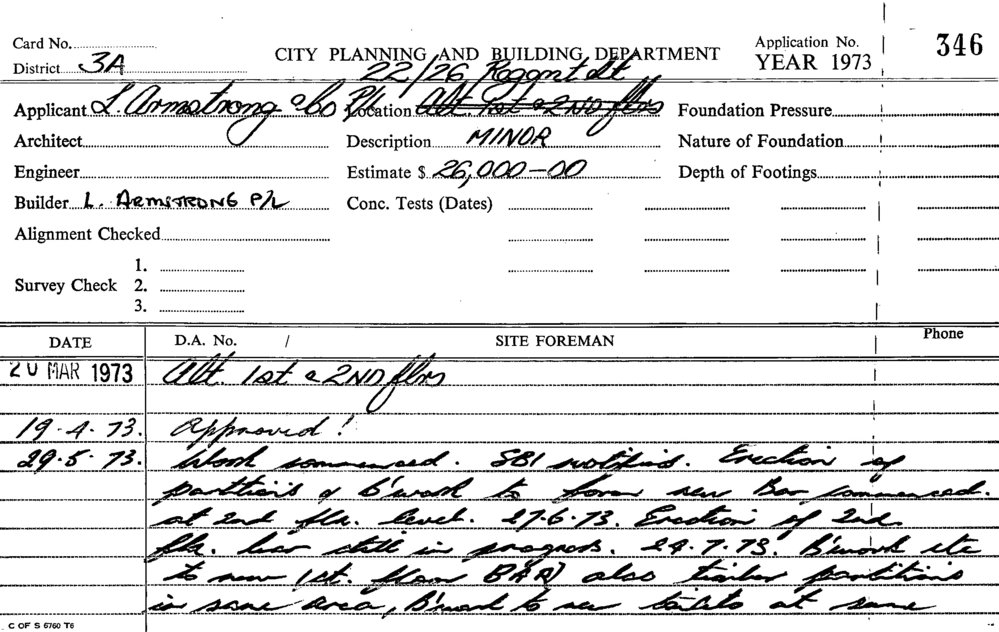 Card No.
District 3A
CITY PLANNING AND BUILDING DEPARTMENT
Application No.
YEAR 1973
346
22/26 Regent St
Applicant L. Armstrong & Co P/L
Location Alt. 1st & 2ND flrs
Foundation Pressure
Architect
Description MINOR
Nature of Foundation
Engineer
Estimate $ 26,000-00
Depth of Footings
Builder L. ARMSTRONG P/L
Conc. Tests (Dates)
Alignment Checked
Survey Check
1.
2.
3.
DATE
D.A. No. /
SITE FOREMAN
Phone
20 MAR 1973 Alt. 1st & 2ND flrs
19.4.73. Approved!
29.5.73. Work commenced. SBI notified. Erection of
partitions & b'work to form new Bar commenced.
at 2nd flr. level. 27.6.73. Erection of 2nd
flr. bar still in progress. 24.7.73. B'work etc
to new 1st. floor BAR also timber partitions
in same area, B'work to new toilets at same
C OF S 6760 T6